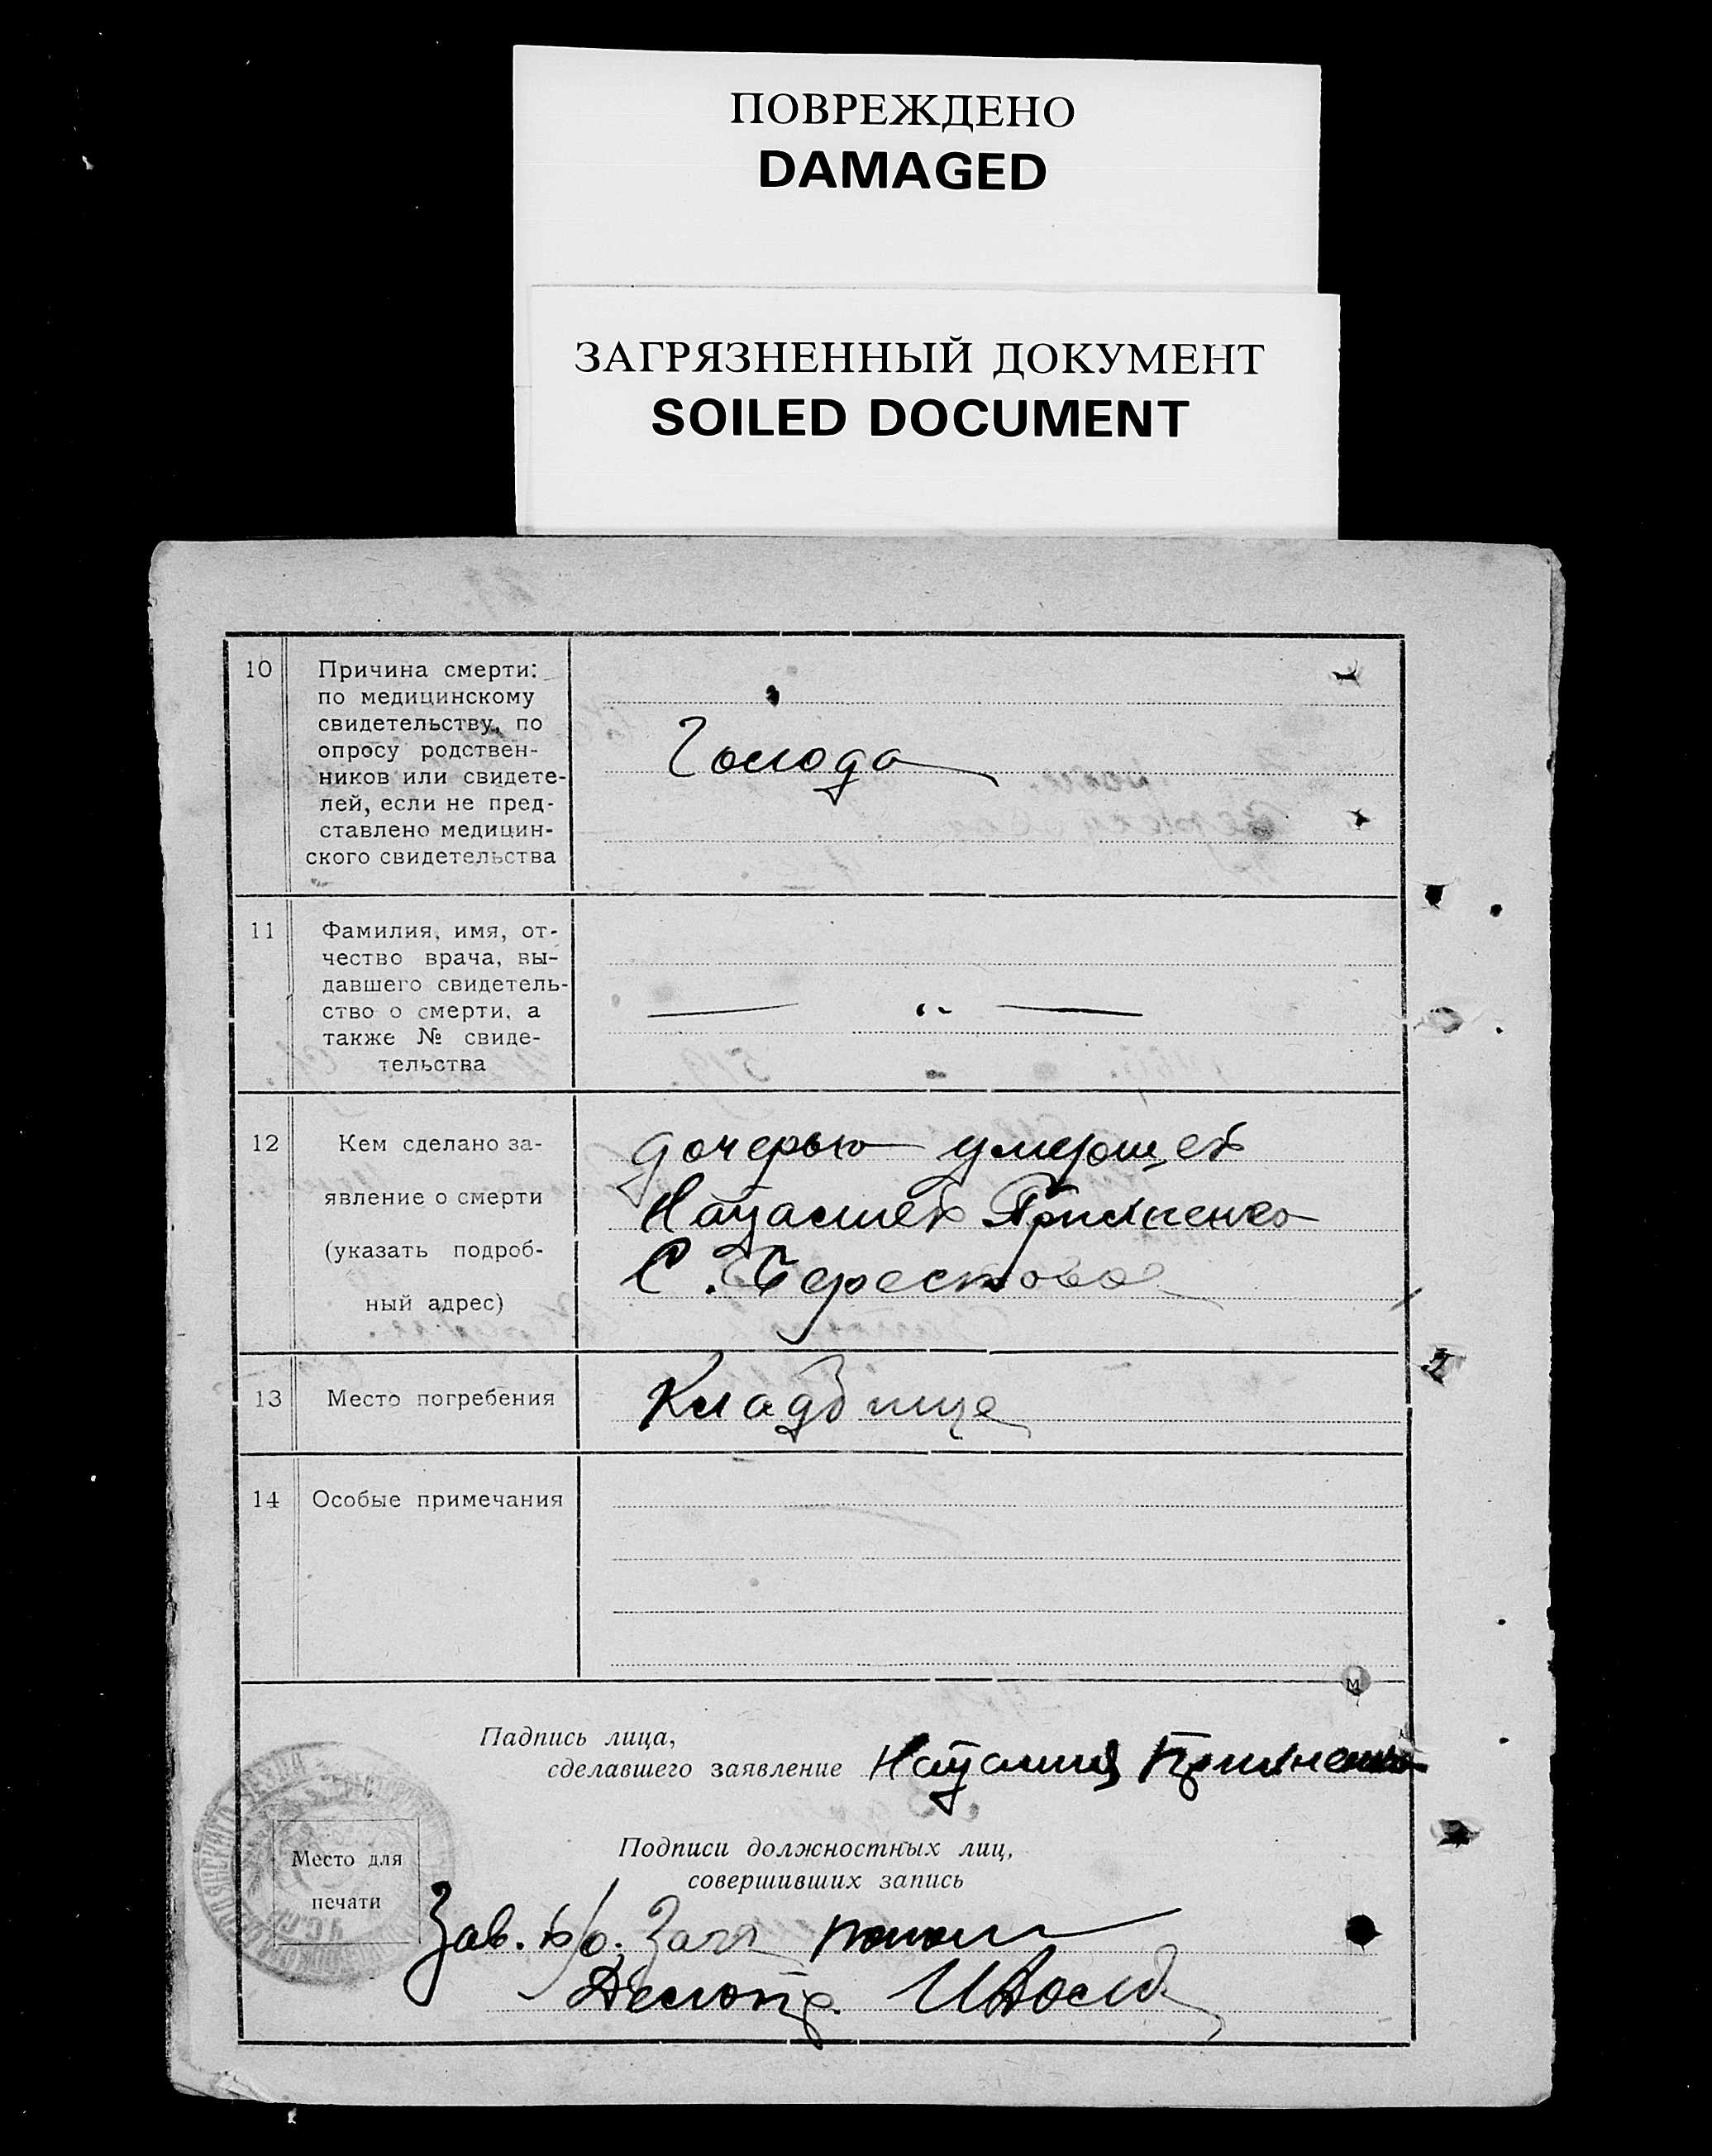 ПОВРЕЖДЕНО
DAMAGED
ЗАГРЯЗНЕННЫЙ ДОКУМЕНТ
SOILED DOCUMENT
10
Причина смерти:
по медицинскому
свидетельству, по
опросу родствен-
ников или свидете-
лей, если не пред-
ставлено медицин-
ского свидетельства
Голода
11
Фамилия, имя, от-
чество врача, вы-
давшего свидетель-
ство о смерти, а
также № свиде-
тельства
— " —
12
Кем сделано за-
явление о смерти
(указать подроб-
ный адрес)
дочерью умершей
Наталией
С. Берестово
13
Место погребения
Кладбище
14
Особые примечания
м
Падпись лица,
сделавшего заявление Наталия
Подписи должностных лиц,
совершивших запись
Место для
печати
Зав. б/о. Загс
Делопр.